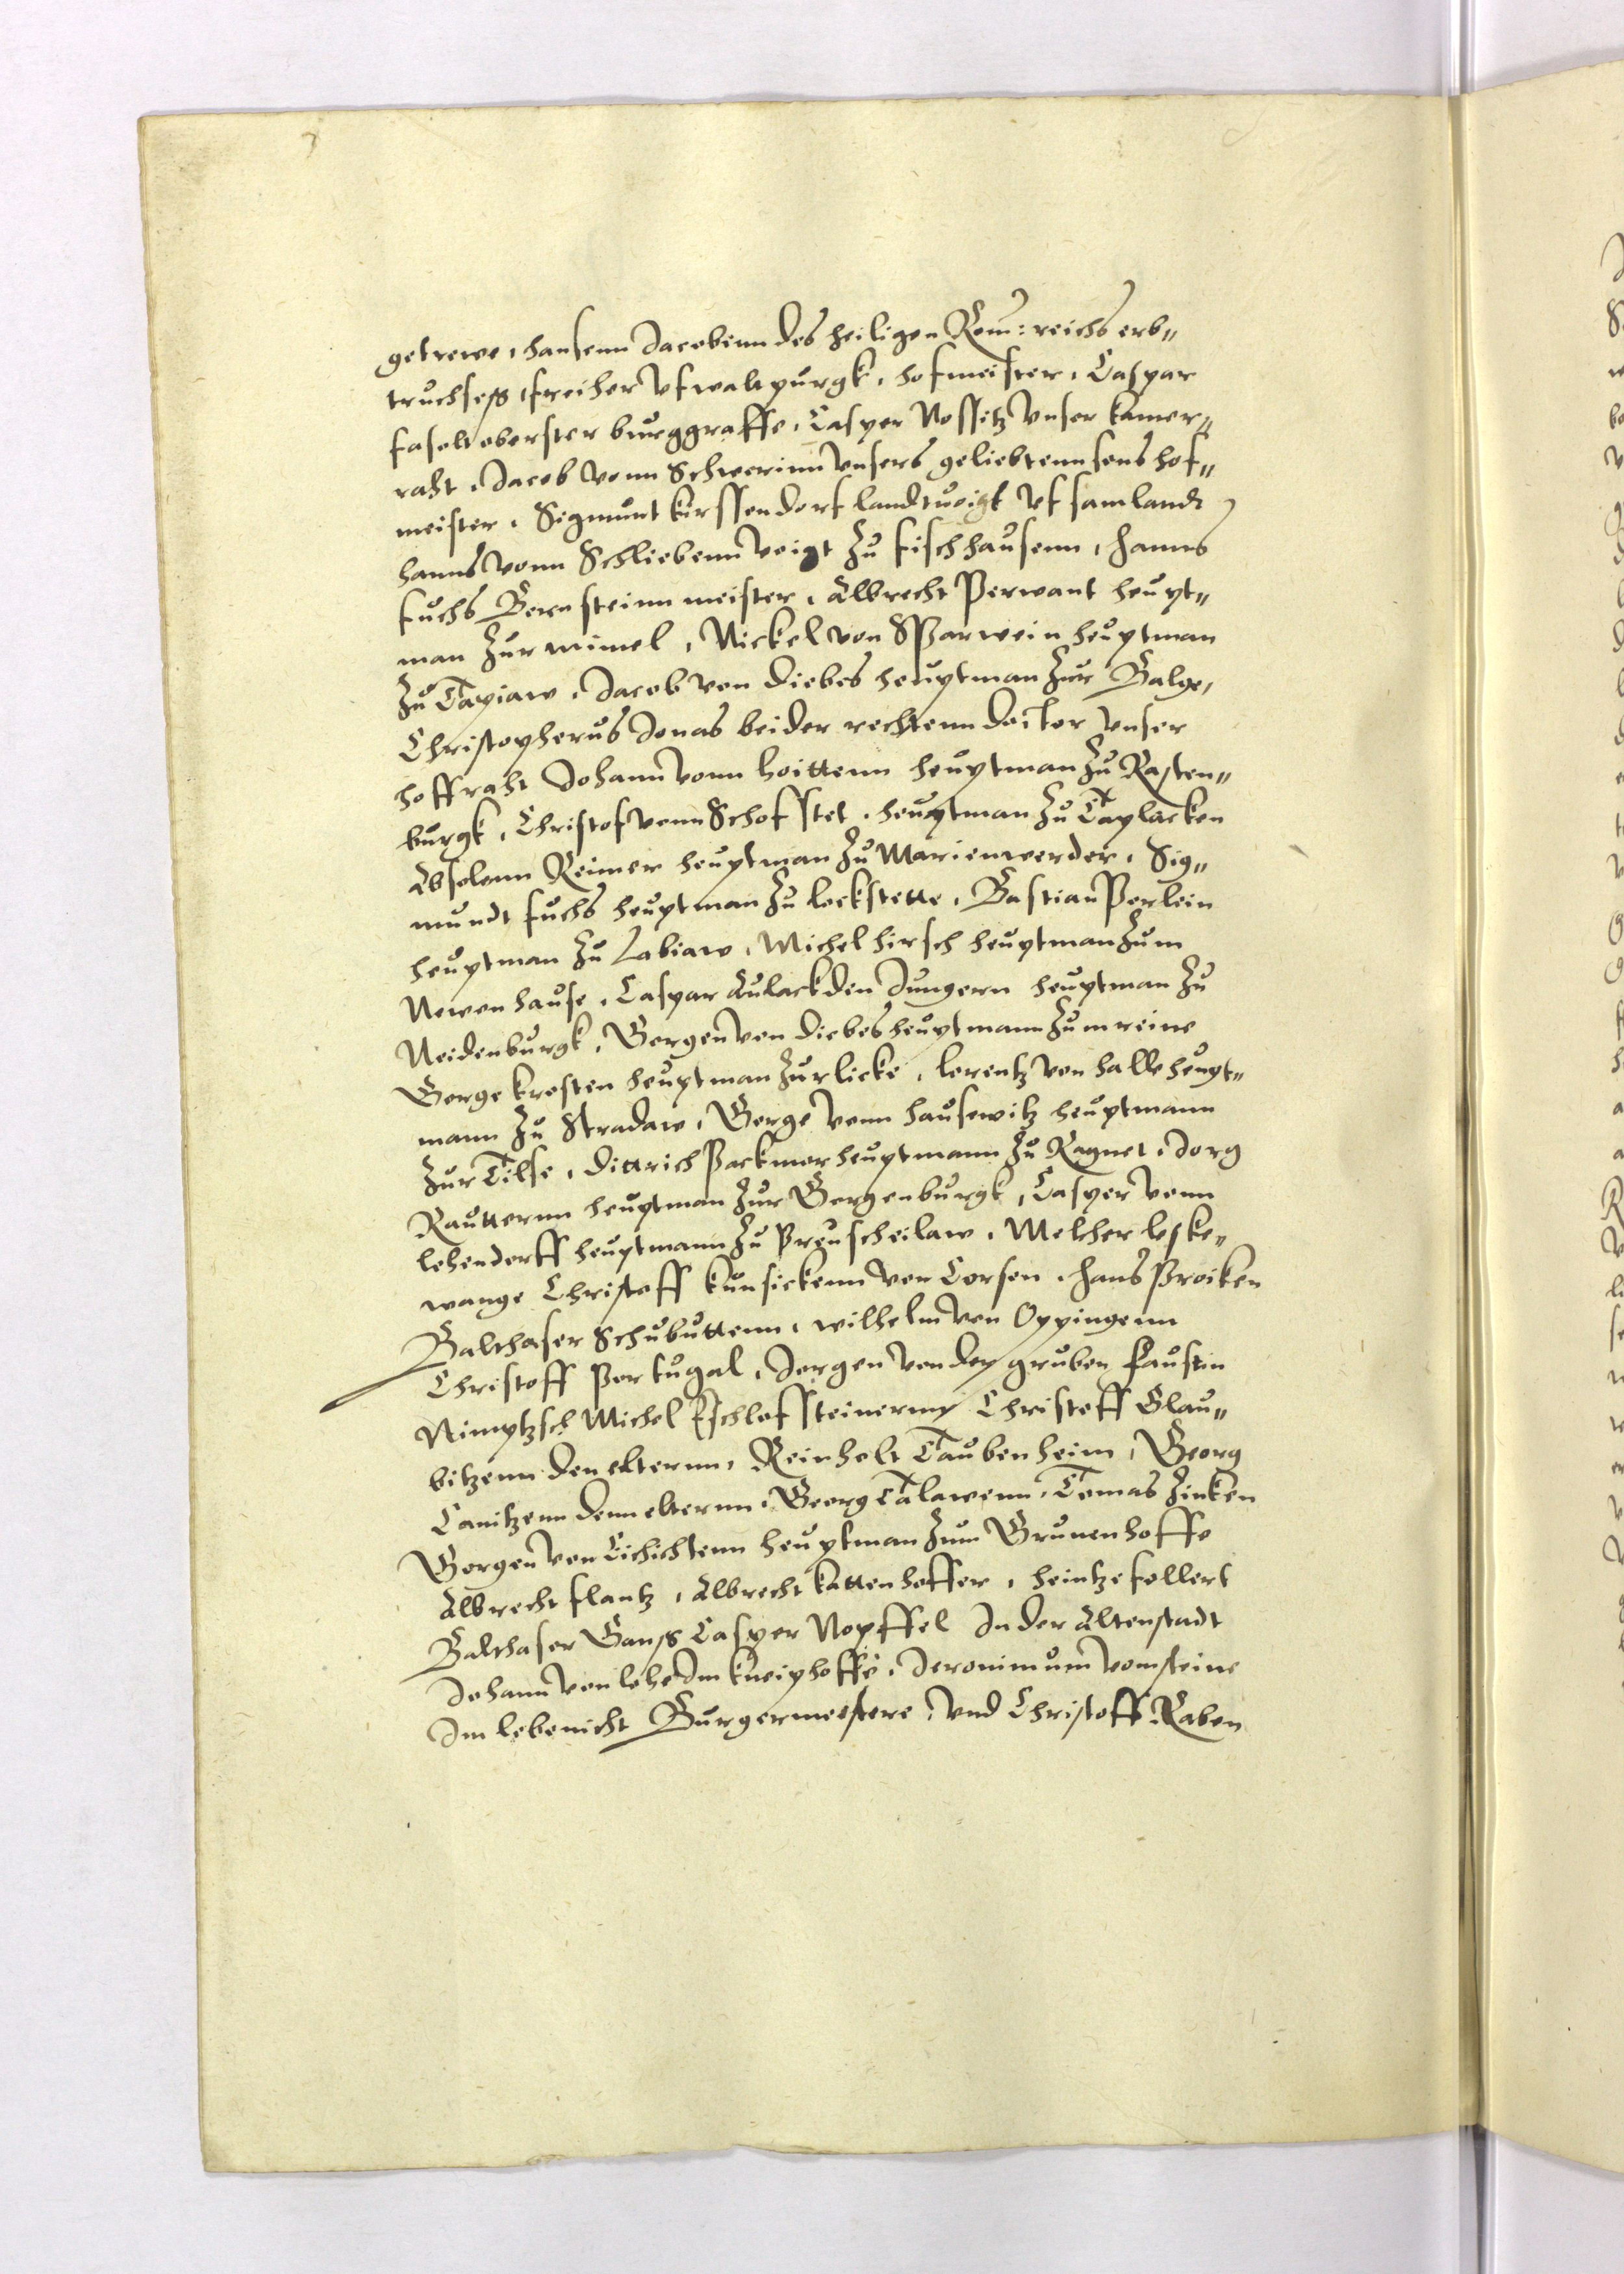 getrewe, hansenn Jacobenn des heiligen Rom: reichs erb„
truchses, freiher vf waltpurgk, hofmeister, Caspar
faselt oberster burggraffe, Casper Nossitz vnser kamer„
raht, Jacob vonn Schwerinn vnsers geliebtenn sons hof„
meister, Sigmunt kirssendorf landtvoigt vf samlandt
hanns vonn Schliebenn voigt zu fischhausenn, hanns
fuchs Bernsteinn meister, Albrecht Perwant heupt„
man zur mimel, Nickel von Sparwein heuptman
zu Tapiaw, Jacob von diebes heuptman zur Balge,
Christopherus Jonas beider rechtenn doctor vnser
hoffraht Johann vonn hoittenn heuptman zu Rasten„
burgk, Christof vonn Schofstet, heuptman zu Taplacken
Absolonn Reimer heuptman zu Marienwerder, Sig„
mundt fuchs heuptman zu lockstette, Bastian Perlein
heuptman zu Labiaw, Michel hirsch heuptman zum
Newen hause, Caspar Aulack den Jungern heuptman zu
Neidenburgk, Gorgen von diebes heuptmann zum reine
Gorge krosten heuptman zur licke, lorentz von halle heupt„
mann zu Stradaw, Gorge vonn hausewitz heuptmann
zur Tilse, dittrich Packmor heuptmann zu Ragnet, Jorg
Rautternn heuptman zur Gorgenburgk, Casper vonn
lehendorff heuptmann zu Preuscheilaw, Melcher leske„
wange Christoff kunsickenn von Corsen, hans Proiken
Balthaser Schubuttenn, wilhelm von Oppingenn
Christoff Portugal, Jorgen von der gruben faustin
Nimptzsch Michel Eschlofsteinernn Christoff Glau„
bitzenn den elternn, Reinholt Taubenheim, Georg
Canitzenn denn elternn, Georg Talawenn, Tomas Zinken
Gorgen von Eichichtenn heuptman zum Grunenhoffe
Albrecht flantz, Albrecht kattenhoffer, heintze follert
Balthaser Gans Casper Nopffel In der Altenstadt
Johann von lohe Im kneiphoffe, Jeronimum vom steine
Im lebenicht Burgermeistere, vnd Christoff Raben